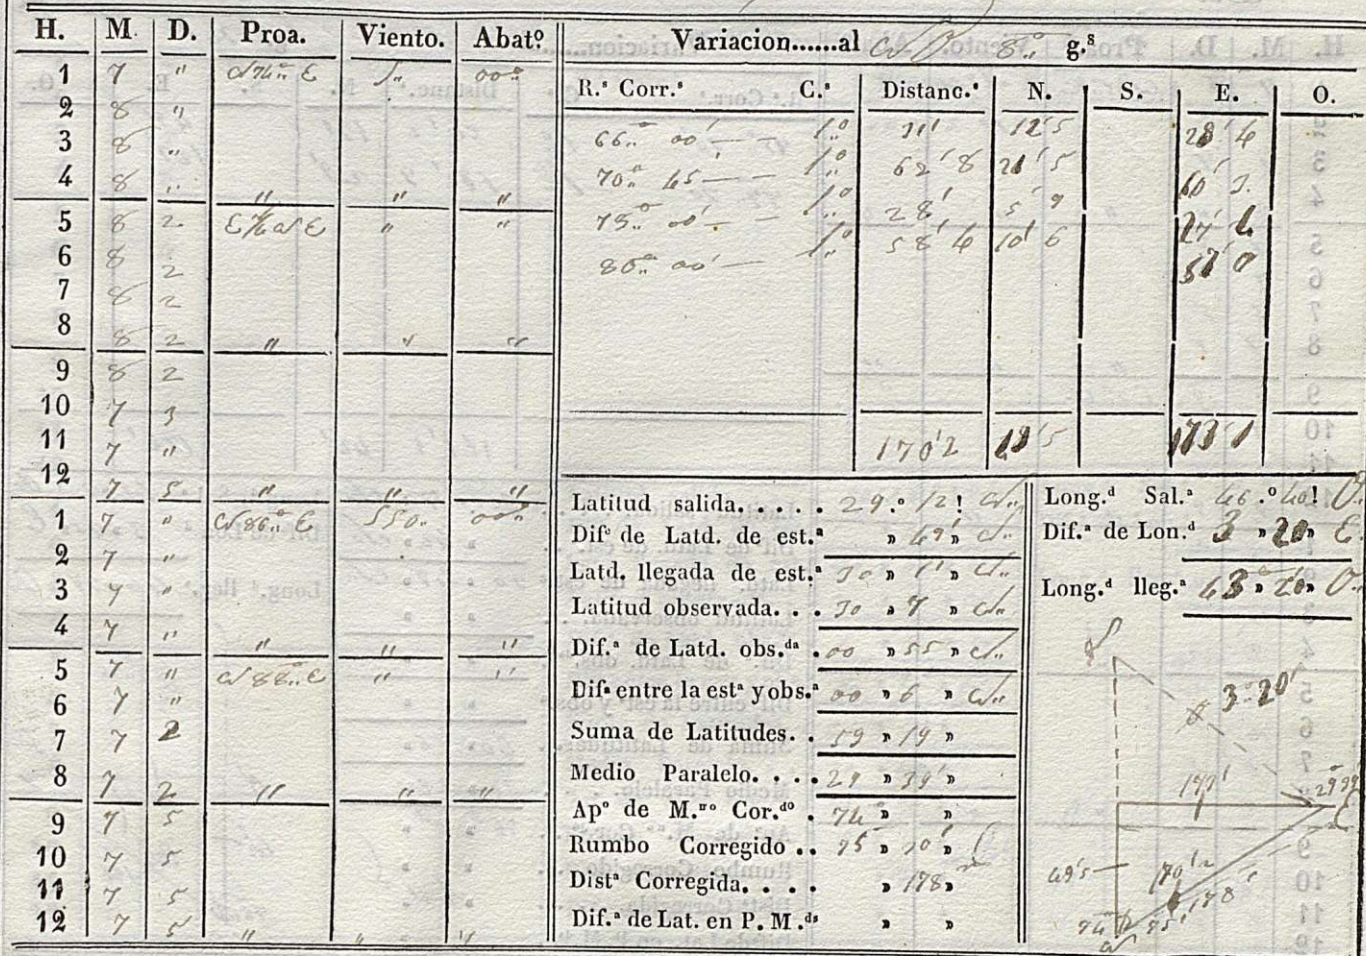 H. M. D. Proa. Viento. Abatº Variacion......al 8º g.s
1 7 " N74º E S.. 00º
2 8 "
3 8 "
4 8 " " " "
5 8 2 " "
6 8 2
7 8 2
8 8 2 " " "
9 8 2
10 7 3
11 7 "
12 7 5 " " "
1 7 " N86º E SSO. 00º
2 7 "
3 7 "
4 7 " " " "
5 7 " N88º E " "
6 7 "
7 7 2
8 7 2 " " "
9 7 5
10 7 5
11 7 5
12 7 5 " " "
R.s Corr.s C.s Distanc.s N. S. E. O.
66º 00' — 1º 31' 12'5 28'4
70º 45 — 1º 62'8 20'5
1º 28' 5'9 27'4
80º 00' — 1º 58'4 10'6
170'2
Latitud salida..... 29.º 12! N..
Difª de Latd. de est.ª " 49' " N..
Latd. llegada de est.ª 30 " 1' " N..
Latitud observada... 30 " 7 " N..
Dif.ª de Latd. obs.da . 00 " 55 " N..
Difª entre la estª y obs.ª 00 " 6 " N..
Suma de Latitudes.. 59 " 19 "
Medio Paralelo.... 29 " 39' "
Apº de M.no Cor.do . 74º " "
Rumbo Corregido .. 75 " 10' "
Distª Corregida.... " 178 "
Dif.ª de Lat. en P. M.ds " "
Long.d Sal.ª 46.º 40! O.
Dif.ª de Lon.d 3 " 20 " E.
Long.d lleg.ª 43 " 20 " O..
3º20'
173'
E
49'5
170'2
178'